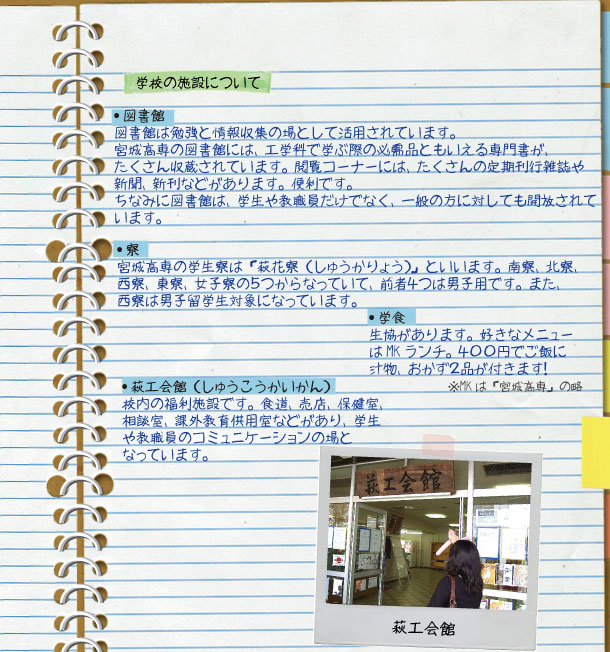 学校の施設について
•図書館
図書館は勉強と情報収集の場として活用されています。
宮城高専の図書館には、工学科で学ぶ際の必需品ともいえる専門書が、
たくさん収蔵されています。閲覧コーナーには、たくさんの定期刊行雑誌や
新聞、新刊などがあります。便利です。
ちなみに図書館は、学生や教職員だけでなく、一般の方に対しても開放されて
います。
•寮
宮城高専の学生寮は『萩花寮（しゅうかりょう）』といいます。南寮、北寮、
西寮、東寮、女子寮の5つからなっていて、前者4つは男子用です。また、
西寮は男子留学生対象になっています。
•学食
生協があります。好きなメニュー
はMKランチ。400円でご飯に
汁物、おかず2品が付きます!
※MKは『宮城高専』の略
•萩工会館（しゅうこうかいかん）
校内の福利施設です。食道、売店、保健室、
相談室、課外教育供用室などがあり、学生
や教職員のコミュニケーションの場と
なっています。
萩工会館
萩工会館